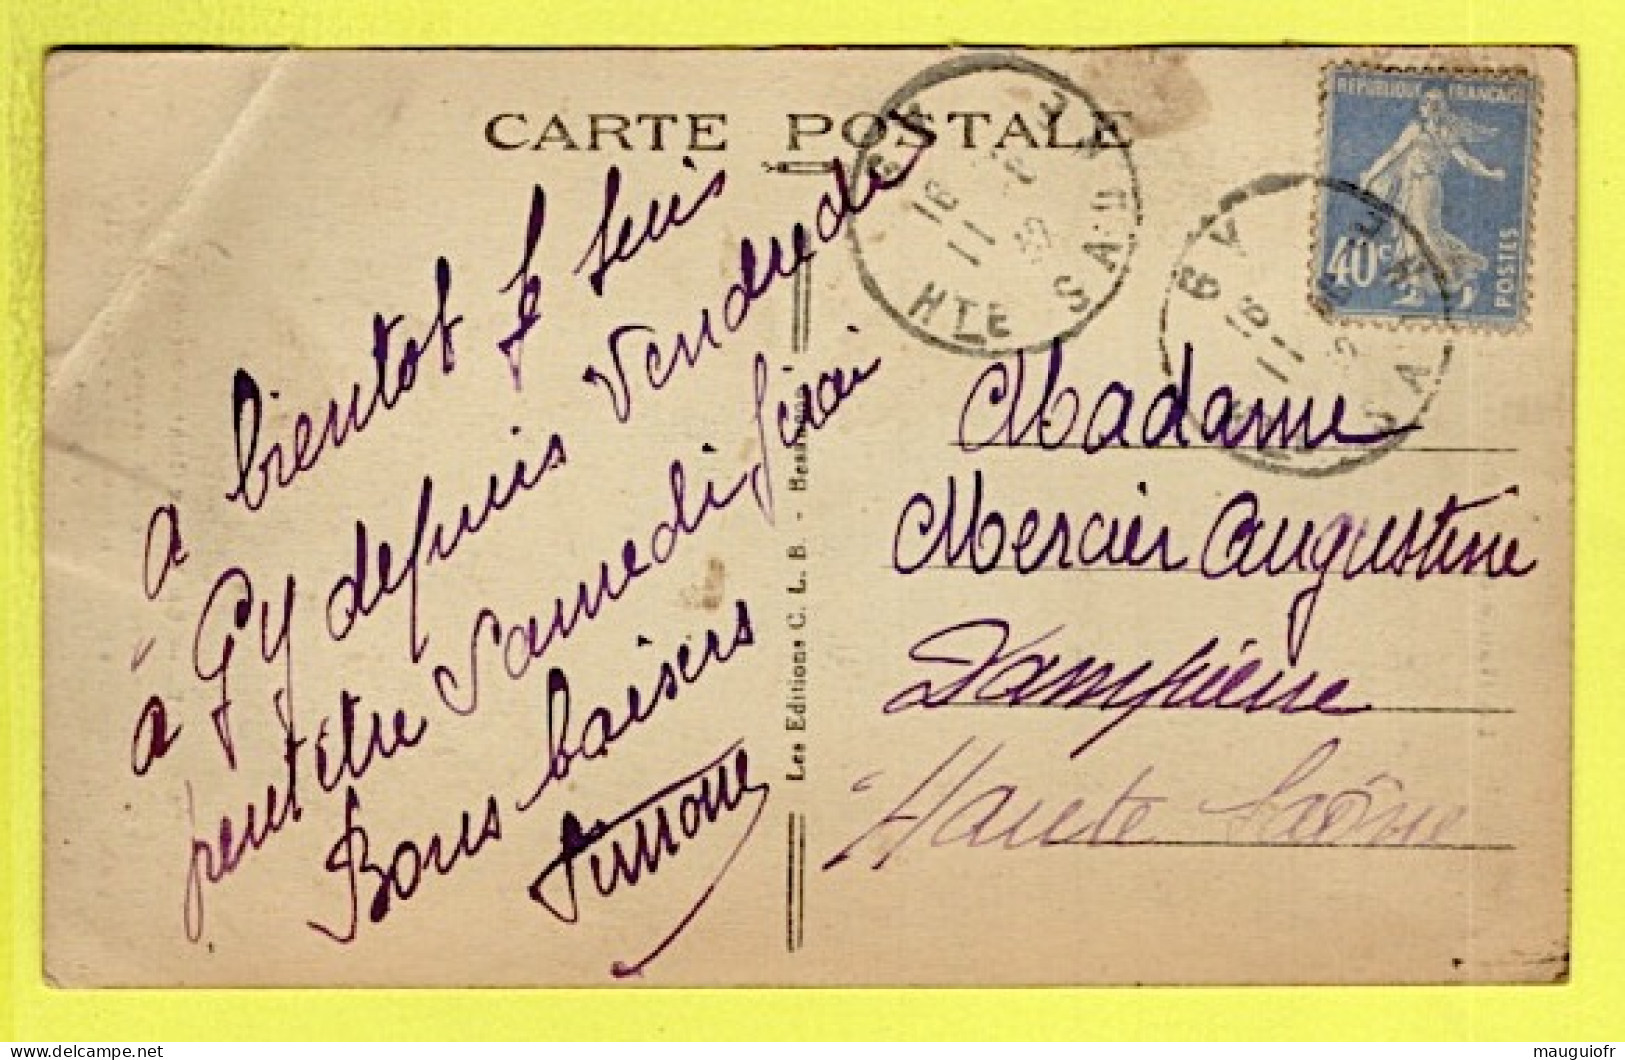 CARTE POSTALE
REPUBLIQUE FRANÇAISE
40c
POSTES
GY
HTE SAONE
GY
a bientot je suis
à Gy depuis Vendredi
peut être Samedi j'irai
Bons baisers
Simone
Les Editions C. L. B. - Besançon
Madame
Mercier Augustine
Dampierre
Haute Saône
mauguiofr